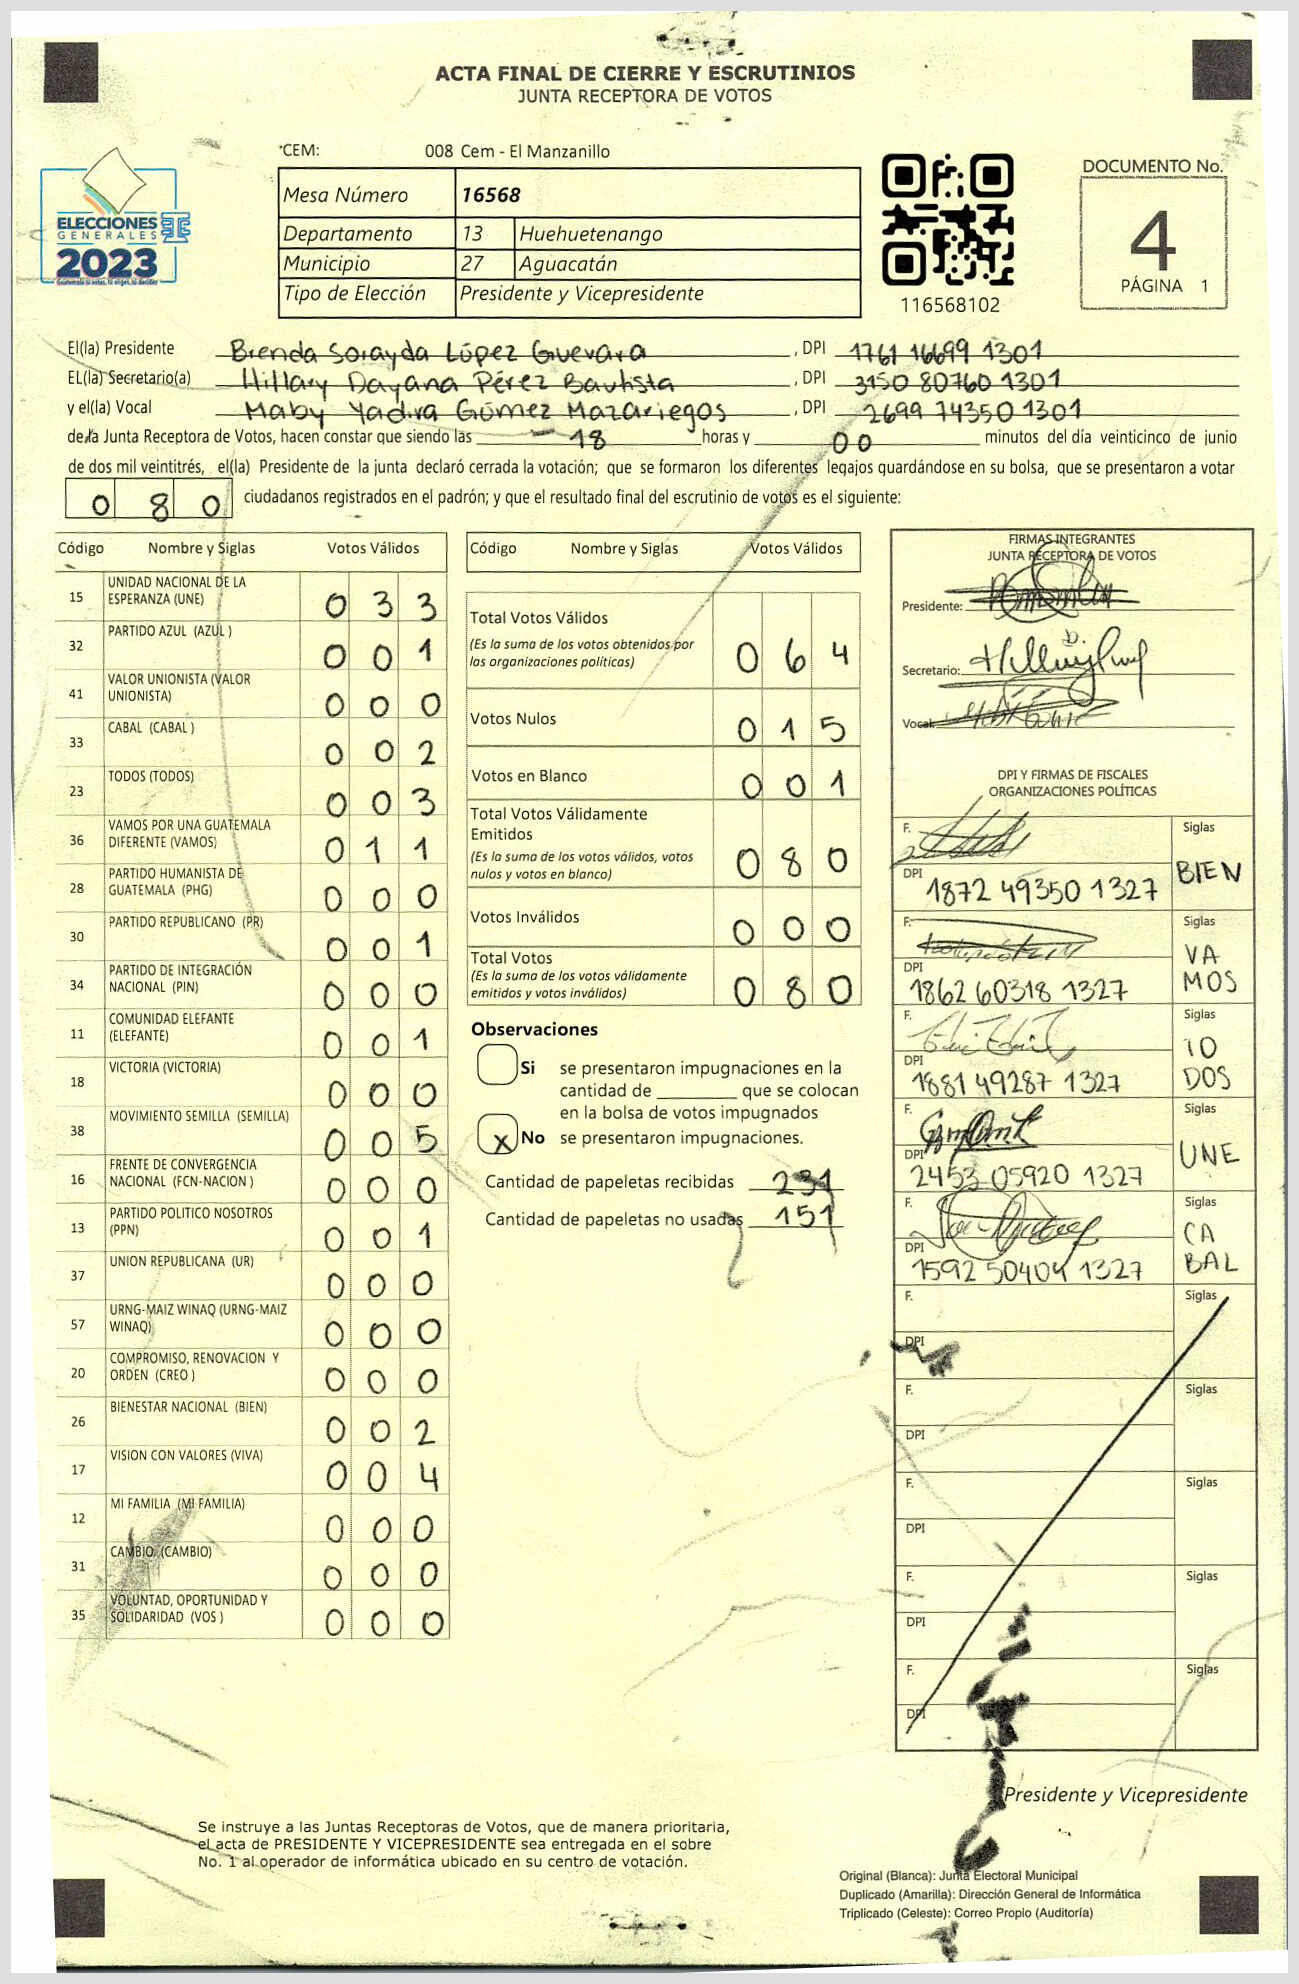 ACTA FINAL DE CIERRE Y ESCRUTINIOS
JUNTA RECEPTORA DE VOTOS
CEM: 008 Cem - El Manzanillo
ELECCIONES
GENERALES
2023
Mesa Número 16568
Departamento 13 Huehuetenango
Municipio 27 Aguacatán
Tipo de Elección Presidente y Vicepresidente
116568102
DOCUMENTO No.
4
PÁGINA 1
El(la) Presidente Brenda Sorayda López Guevara, DPI 1761 16699 1301
EL(la) Secretario(a) Hillary Dayana Pérez Bautista, DPI 3150 80760 1301
y el(la) Vocal Maby Yadira Gómez Mazariegos, DPI 2699 74350 1301
de la Junta Receptora de Votos, hacen constar que siendo las 18 horas y 00 minutos del día veinticinco de junio
de dos mil veintitrés, el(la) Presidente de la junta declaró cerrada la votación; que se formaron los diferentes legajos guardándose en su bolsa, que se presentaron a votar
0 8 0 ciudadanos registrados en el padrón; y que el resultado final del escrutinio de votos es el siguiente:
Código Nombre y Siglas Votos Válidos
15 UNIDAD NACIONAL DE LA ESPERANZA (UNE) 0 3 3
32 PARTIDO AZUL (AZUL ) 0 0 1
41 VALOR UNIONISTA (VALOR UNIONISTA) 0 0 0
33 CABAL (CABAL ) 0 0 2
23 TODOS (TODOS) 0 0 3
36 VAMOS POR UNA GUATEMALA DIFERENTE (VAMOS) 0 1 1
28 PARTIDO HUMANISTA DE GUATEMALA (PHG) 0 0 0
30 PARTIDO REPUBLICANO (PR) 0 0 1
34 PARTIDO DE INTEGRACIÓN NACIONAL (PIN) 0 0 0
11 COMUNIDAD ELEFANTE (ELEFANTE) 0 0 1
18 VICTORIA (VICTORIA) 0 0 0
38 MOVIMIENTO SEMILLA (SEMILLA) 0 0 5
16 FRENTE DE CONVERGENCIA NACIONAL (FCN-NACION ) 0 0 0
13 PARTIDO POLITICO NOSOTROS (PPN) 0 0 1
37 UNION REPUBLICANA (UR) 0 0 0
57 URNG-MAIZ WINAQ (URNG-MAIZ WINAQ) 0 0 0
20 COMPROMISO, RENOVACION Y ORDEN (CREO ) 0 0 0
26 BIENESTAR NACIONAL (BIEN) 0 0 2
17 VISION CON VALORES (VIVA) 0 0 4
12 MI FAMILIA (MI FAMILIA) 0 0 0
31 CAMBIO (CAMBIO) 0 0 0
35 VOLUNTAD, OPORTUNIDAD Y SOLIDARIDAD (VOS ) 0 0 0
Código Nombre y Siglas Votos Válidos
Total Votos Válidos
(Es la suma de los votos obtenidos por las organizaciones políticas) 0 6 4
Votos Nulos 0 1 5
Votos en Blanco 0 0 1
Total Votos Válidamente Emitidos
(Es la suma de los votos válidos, votos nulos y votos en blanco) 0 8 0
Votos Inválidos 0 0 0
Total Votos
(Es la suma de los votos válidamente emitidos y votos inválidos) 0 8 0
Observaciones
Si se presentaron impugnaciones en la
cantidad de ________ que se colocan
en la bolsa de votos impugnados
x No se presentaron impugnaciones.
Cantidad de papeletas recibidas 231
Cantidad de papeletas no usadas 151
FIRMAS INTEGRANTES
JUNTA RECEPTORA DE VOTOS
Presidente:
Secretario:
Vocal:
DPI Y FIRMAS DE FISCALES
ORGANIZACIONES POLÍTICAS
F. Siglas
DPI 1872 49350 1327 BIEN
F. Siglas
DPI 1862 60318 1327 VA MOS
F. Siglas
DPI 1881 49287 1327 TO DOS
F. Siglas
DPI 2453 05920 1327 UNE
F. Siglas
DPI 1592 50404 1327 CA BAL
F. Siglas
DPI
F. Siglas
DPI
F. Siglas
DPI
F. Siglas
DPI
F. Siglas
DPI
Presidente y Vicepresidente
Se instruye a las Juntas Receptoras de Votos, que de manera prioritaria,
el acta de PRESIDENTE Y VICEPRESIDENTE sea entregada en el sobre
No. 1 al operador de informática ubicado en su centro de votación.
Original (Blanca): Junta Electoral Municipal
Duplicado (Amarilla): Dirección General de Informática
Triplicado (Celeste): Correo Propio (Auditoría)